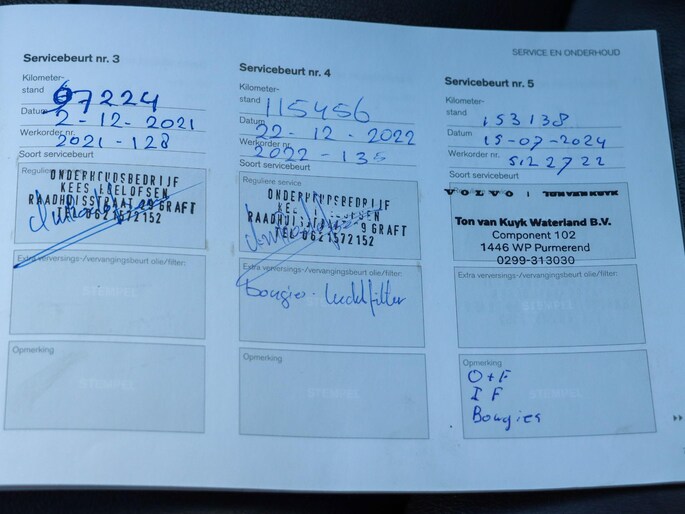 SERVICE EN ONDERHOUD
Servicebeurt nr. 3
Kilometer-
stand 97224
Datum 2-12-2021
Werkorder nr.
2021-128
Soort servicebeurt
Reguliere
ONDERHOUDSBEDRIJF
KEES
RAADHUISSTRAAT 29 GRAFT
TEL 0621572152
Extra verversings-/vervangingsbeurt olie/filter:
STEMPEL
Opmerking
STEMPEL
Servicebeurt nr. 4
Kilometer-
stand 115456
Datum
22-12-2022
Werkorder nr.
2022-135
Soort servicebeurt
Reguliere service
ONDERHOUDSBEDRIJF
RAADHUISSTRAAT 29 GRAFT
TEL 0621572152
Extra verversings-/vervangingsbeurt olie/filter:
bougie. luchtfilter
Opmerking
Servicebeurt nr. 5
Kilometer-
stand 153138
Datum 15-07-2024
Werkorder nr. 5122722
Soort servicebeurt
VOLVO | TON VAN KUYK
Ton van Kuyk Waterland B.V.
Component 102
1446 WP Purmerend
0299-313030
Extra verversings-/vervangingsbeurt olie/filter:
STEMPEL
Opmerking
O+F
IF
Bougies